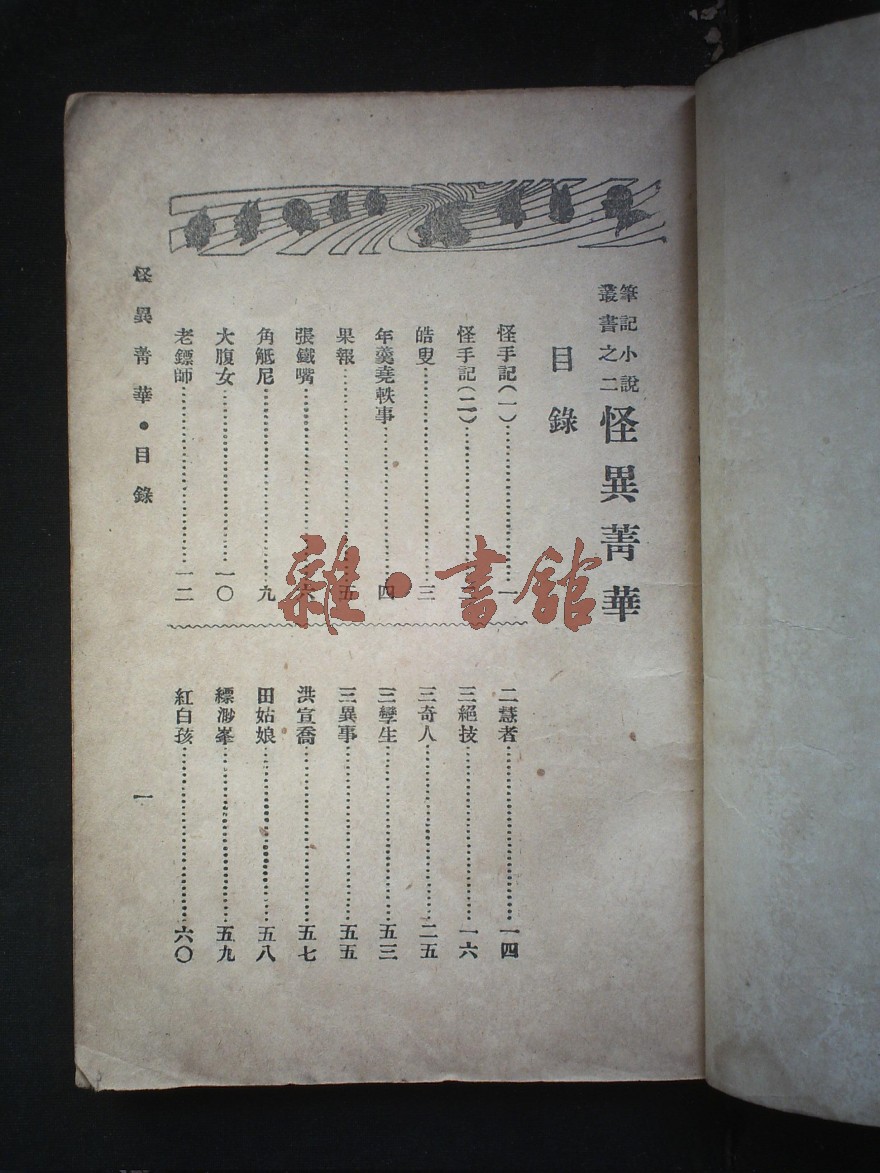 筆記小說
叢書之二
怪異菁華
目錄
怪手記(一)……一
怪手記(二)……
皓叟……三
年羹堯軼事……四
果報……五
張鐵嘴……六
角觝尼……九
大腹女……一〇
老鏢師……一二
二慧者……一四
三絕技……一六
三奇人……二五
三孿生……五三
三異事……五五
洪宣喬……五七
田姑娘……五八
縹渺峯……五九
紅白孩……六〇
怪異菁華•目錄
一
雜·書館